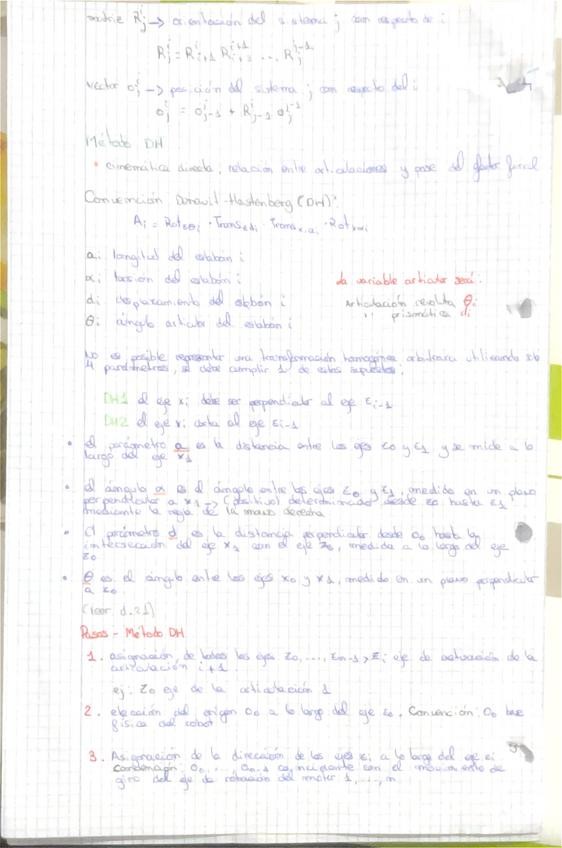 matriz Rⁱⱼ → orientación del sistema j con respecto de i
Rⁱⱼ = Rⁱᵢ₊₁ Rⁱ⁺¹ᵢ₊₂ ... Rʲ⁻¹ⱼ
vector oⁱⱼ → posición del sistema j con respecto del i
oⁱⱼ = oⁱⱼ₋₁ + Rⁱⱼ₋₁ oʲ⁻¹ⱼ
Método DH
* cinemática directa, relación entre articulaciones y pose del efector final
Convención Denavit-Hastenberg (DH):
Aᵢ = Rot · Trans · Trans · Rot
aᵢ longitud del eslabón i
αᵢ torsión del eslabón i
dᵢ desplazamiento del eslabón i
θᵢ ángulo articular del eslabón i
La variable articular será:
Articulación revoluta θᵢ
" prismática dᵢ
No es posible representar una transformación homogénea arbitraria utilizando sólo
4 parámetros, se debe cumplir 1 de estos supuestos:
DH1 el eje xᵢ debe ser perpendicular al eje zᵢ₋₁
DH2 el eje xᵢ corta al eje zᵢ₋₁
• el parámetro a es la distancia entre los ejes z0 y z1 y se mide a lo
largo del eje x1
• el ángulo α es el ángulo entre los ejes z0 y z1, medido en un plano
perpendicular a x1 → (positivo) determinado desde z0 hasta z1
mediante la regla de la mano derecha
• el parámetro d es la distancia perpendicular desde o0 hasta la
intersección del eje x1 con el eje z0, medida a lo largo del eje
z0
• θ es el ángulo entre los ejes x0 y x1, medido en un plano perpendicular
a z0.
(leer d.21)
Pasos - Método DH
1. asignación de todos los ejes z0, ..., zn-1, zᵢ eje de actuación de la
articulación i+1.
ej: z0 eje de la articulación 1
2. elección del origen o0 a lo largo del eje z0. Convención: o0 base
física del robot
3. Asignación de la dirección de los ejes a lo largo del eje
o0, ..., on-1 coincidente con el movimiento de
giro del eje de rotación del motor 1, ..., n